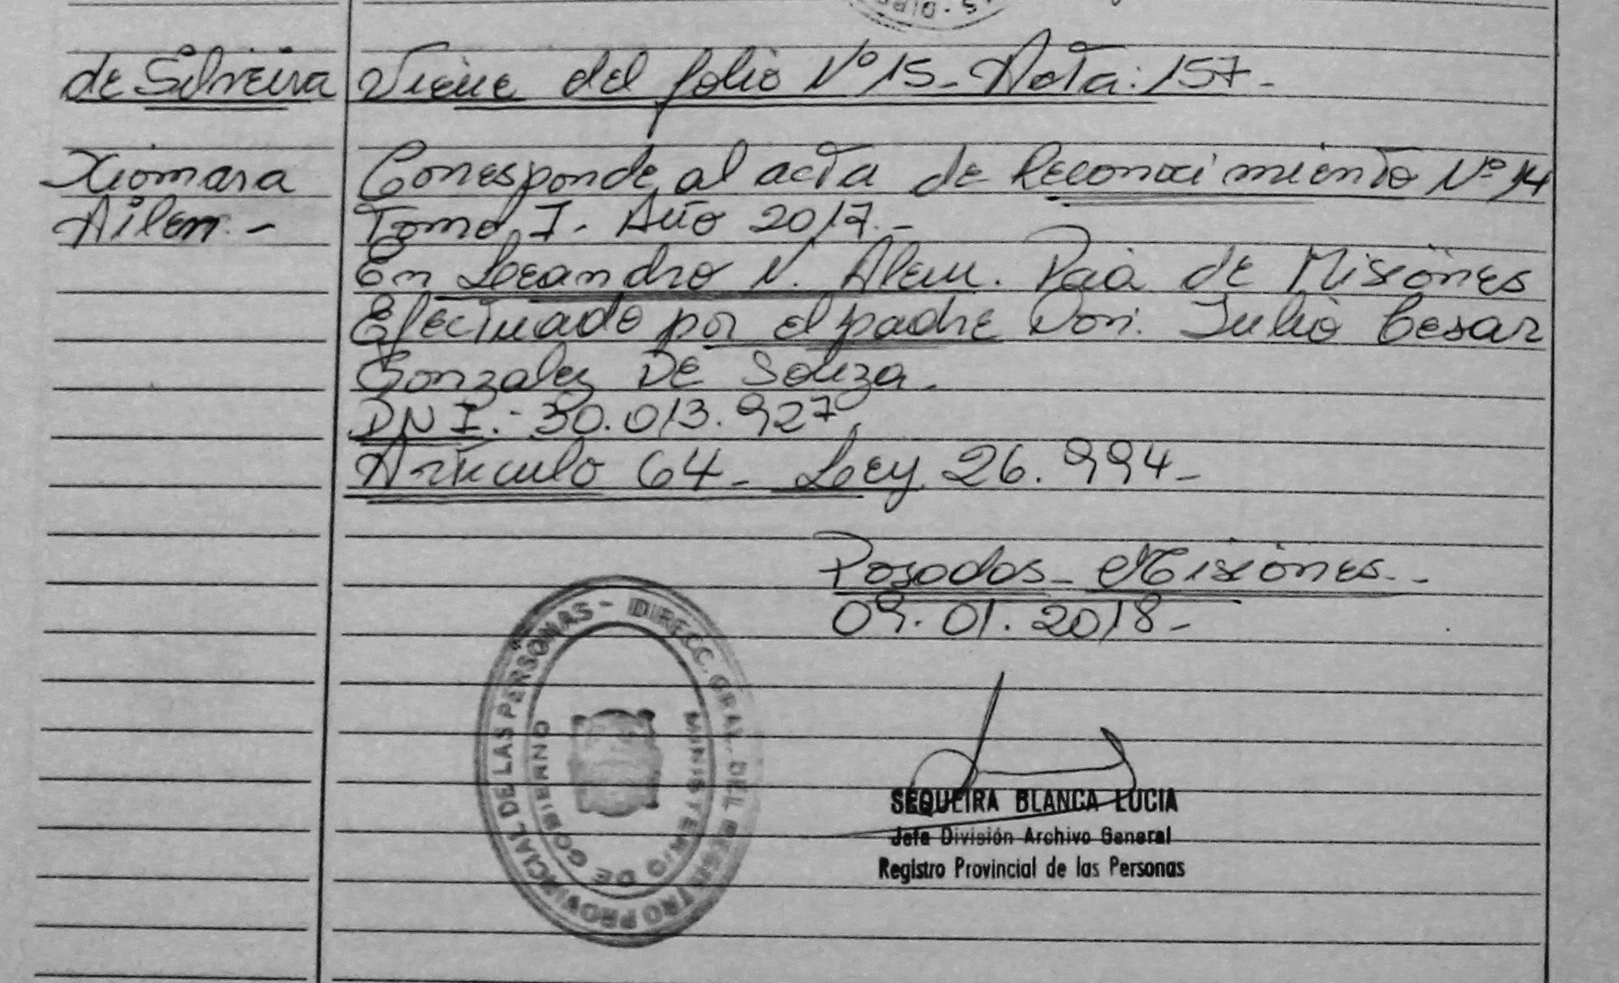 de Silveira
Xiomara
Ailen.-
Viene del folio Nº 15- Nota: 157-
Corresponde al acta de Reconocimiento Nº 94
Tomo I. Año 2017.-
En Leandro N. Alem. Pcia de Misiones
Efectuado por el padre Don: Julio Cesar
Gonzalez DE Souza.
DNI.- 30.013.927
Articulo 64- Ley 26.994-
Posadas- Misiones.-
09.01.2018-
DIRECC. GRAL. DEL REGISTRO PROVINCIAL DE LAS PERSONAS -
MINISTERIO DE GOBIERNO
SEQUEIRA BLANCA LUCIA
Jefa División Archivo General
Registro Provincial de las Personas